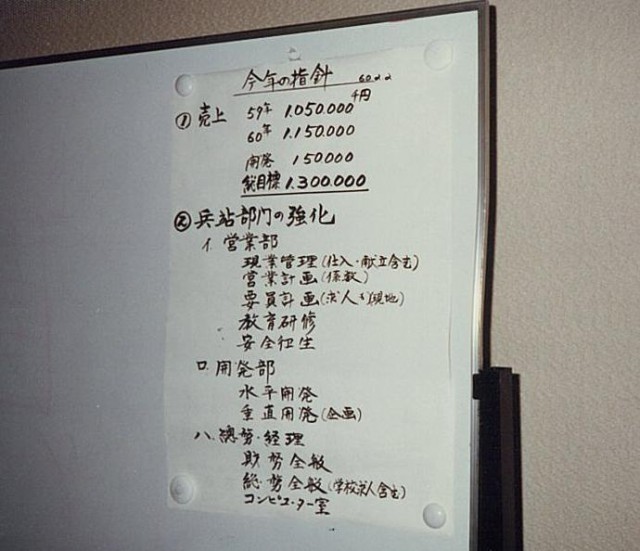 今年の指針 60.2.2
千円
① 売上 59年 1.050.000
60年 1.150.000
開発 150.000
総目標 1.300.000
② 兵站部門の強化
イ. 営業部
現業管理(仕入・献立含む)
営業計画(係数)
要員計画(求人も現地)
教育研修
安全衛生
ロ. 開発部
水平開発
垂直開発(企画)
ハ. 總務・経理
財務全般
総務全般(学校求人含む)
コンピューター室